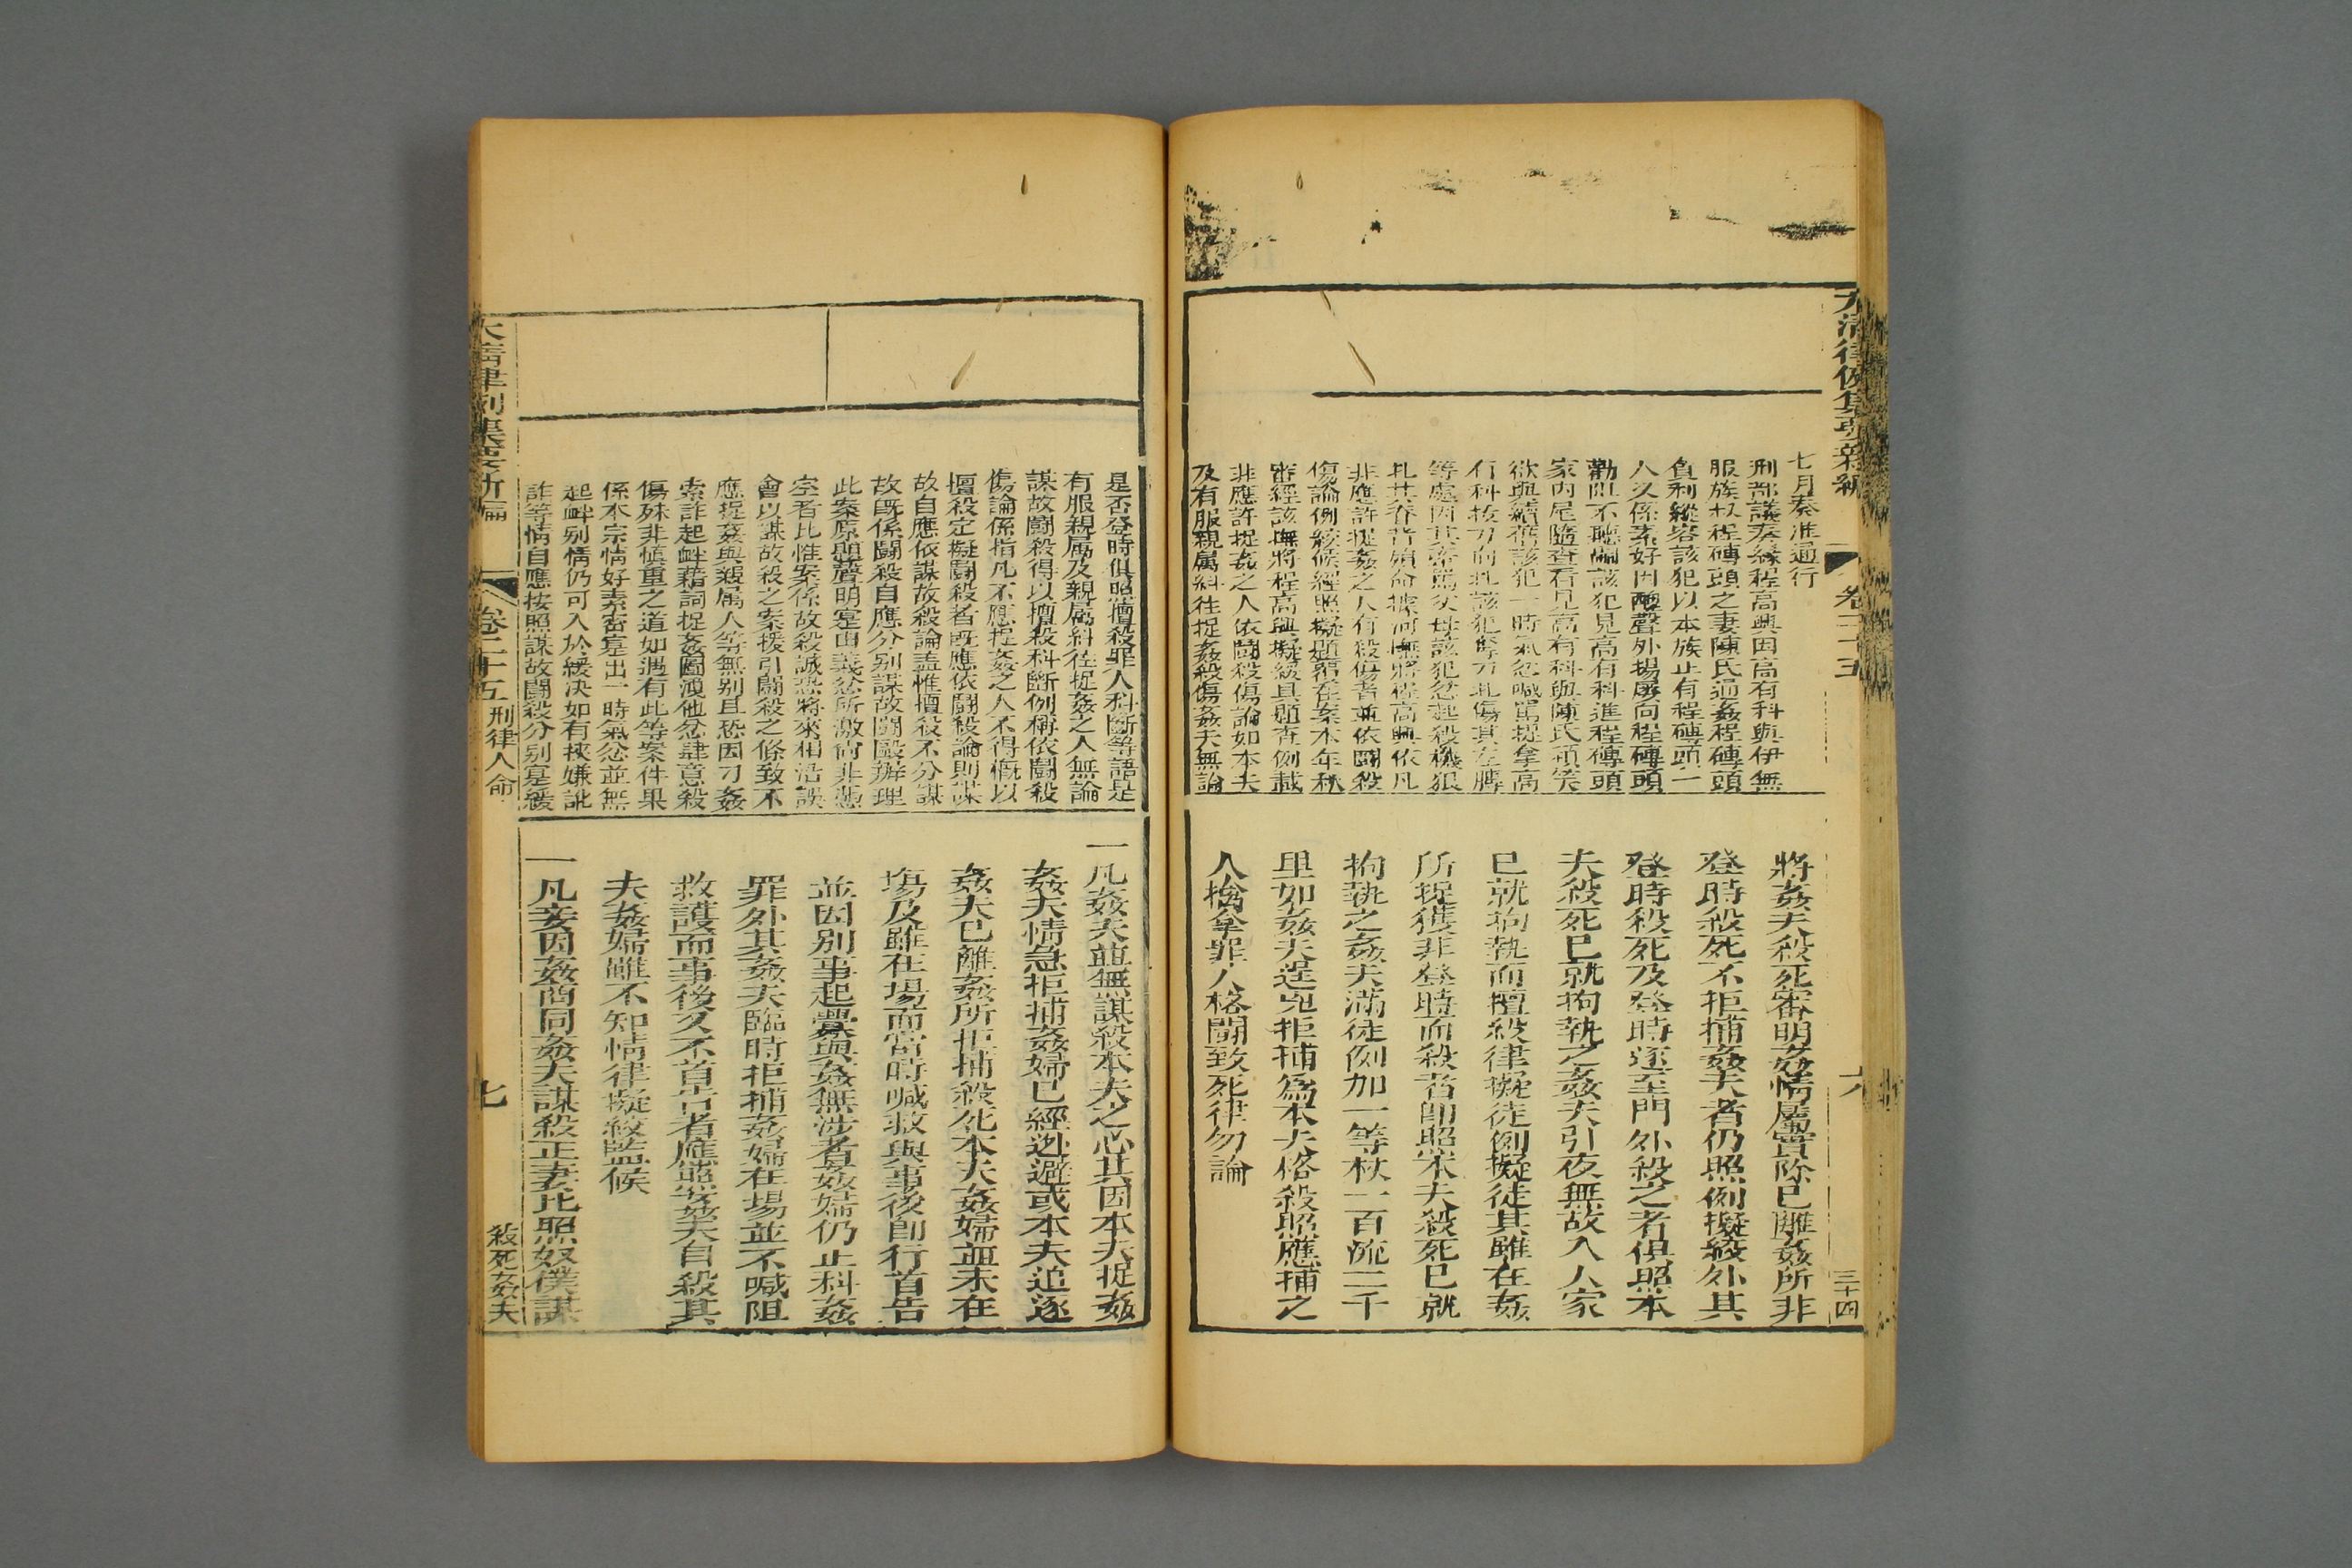 大清律例集要新編
卷二十五
六
三十四
七月奏准通行
刑部議奏緣程高興因高有科與伊無
服族叔程磚頭之妻陳氏通姦程磚頭
貪利縱容該犯以本族止有程磚頭一
人久係素好因醜聲外揚屢向程磚頭
勸阻不聽嗣該犯見高有科進程磚頭
家內尾隨查看見高有科與陳氏頑笑
欲與續舊該犯一時氣忿喊罵捉拿高
有科拔刀向扎該犯奪刀扎傷其左胯
等處因其辱罵父母該犯忿起殺機狠
扎其脊背殞命據河撫將程高興依凡
非應許捉姦之人有殺傷者並依鬭殺
傷論例絞候經照擬題覆在案本年秋
審經該撫將程高興擬緩具題查例載
非應許捉姦之人依鬭殺傷論如本夫
及有服親屬糾往捉姦殺傷姦夫無論
將姦夫殺死審明姦情屬實除已離姦所非
登時殺死不拒捕姦夫者仍照例擬絞外其
登時殺死及登時逐至門外殺之者俱照本
夫殺死已就拘執之姦夫引夜無故入人家
已就拘執而擅殺律擬徒例擬徒其雖在姦
所捉獲非登時而殺者即照本夫殺死已就
拘執之姦夫滿徒例加一等杖一百流二千
里如姦夫逞兇拒捕為本夫格殺照應捕之
人擒拿罪人格鬭致死律勿論
是否登時俱照擅殺罪人科斷等語是
有服親屬及親屬糾往捉姦之人無論
謀故鬭殺得以擅殺科斷例稱依鬭殺
傷論係指凡不應捉姦之人不得槪以
擅殺定擬鬭殺者既應依鬭殺論則謀
故自應依謀故殺論盖惟擅殺不分謀
故既係鬭殺自應分别謀故鬭毆辦理
此案原題聲明寔由義忿所激尚非慿
空者比惟案係故殺誠恐將來相沿誤
會以謀故殺之案援引鬭殺之條致不
應捉姦與親屬人等無别且恐因刁姦
索詐起衅藉詞捉姦圖洩他忿肆意殺
傷殊非慎重之道如遇有此等案件果
係本宗情好素密寔出一時氣忿並無
起衅别情仍可入於緩决如有挾嫌訛
詐等情自應按照謀故鬭殺分别寔緩
一凡姦夫並無謀殺本夫之心其因本夫捉姦
姦夫情急拒捕姦婦已經逃避或本夫追逐
姦夫已離姦所拒捕殺死本夫姦婦並未在
塲及雖在場而當時喊救與事後即行首告
並因别事起衅與姦無涉者姦婦仍止科姦
罪外其姦夫臨時拒捕姦婦在場並不喊阻
救護而事後久不首告者應照姦夫自殺其
夫姦婦雖不知情律擬絞監候
一凡妾因姦商同姦夫謀殺正妻比照奴僕謀
大清律例集要新編
卷二十五
刑律人命
七
殺死姦夫